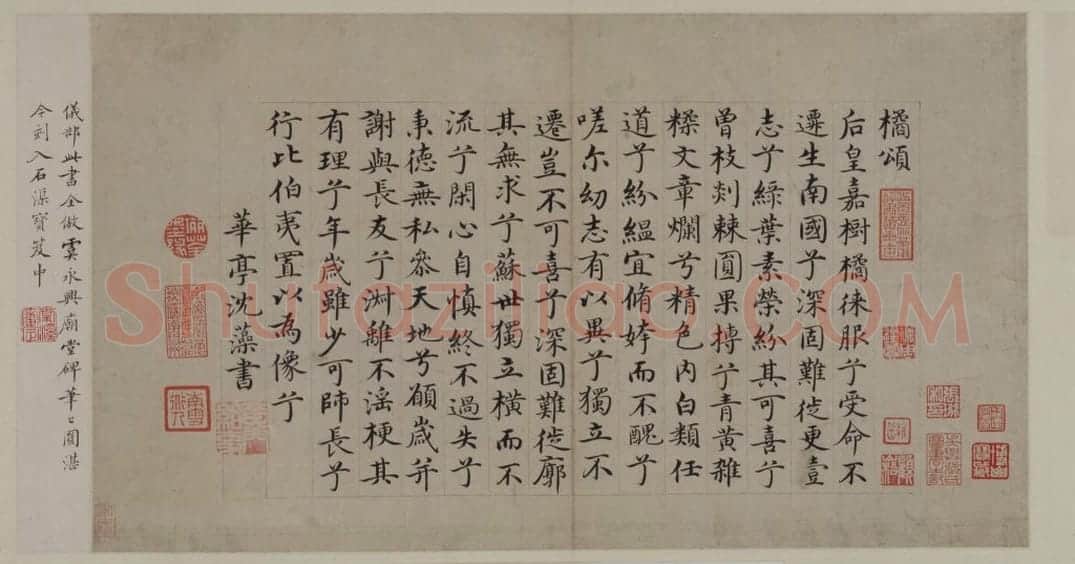 橘頌
后皇嘉樹橘徠服兮受命不
遷生南國兮深固難徙更壹
志兮綠葉素榮紛其可喜兮
曾枝剡棘圓果摶兮青黃雜
糅文章爛兮精色內白類任
道兮紛緼宜脩姱而不醜兮
嗟尔幼志有以異兮獨立不
遷豈不可喜兮深固難徙廓
其無求兮蘇世獨立橫而不
流兮閑心自慎終不過失兮
秉德無私叅天地兮願歲并
謝與長友兮淑離不淫梗其
有理兮年歲雖少可師長兮
行比伯夷置以為像兮
華亭沈藻書
儀部此書全倣虞永興廟堂碑筆〻圓湛
今刻入石渠寶笈中
Shufaziliao.COM